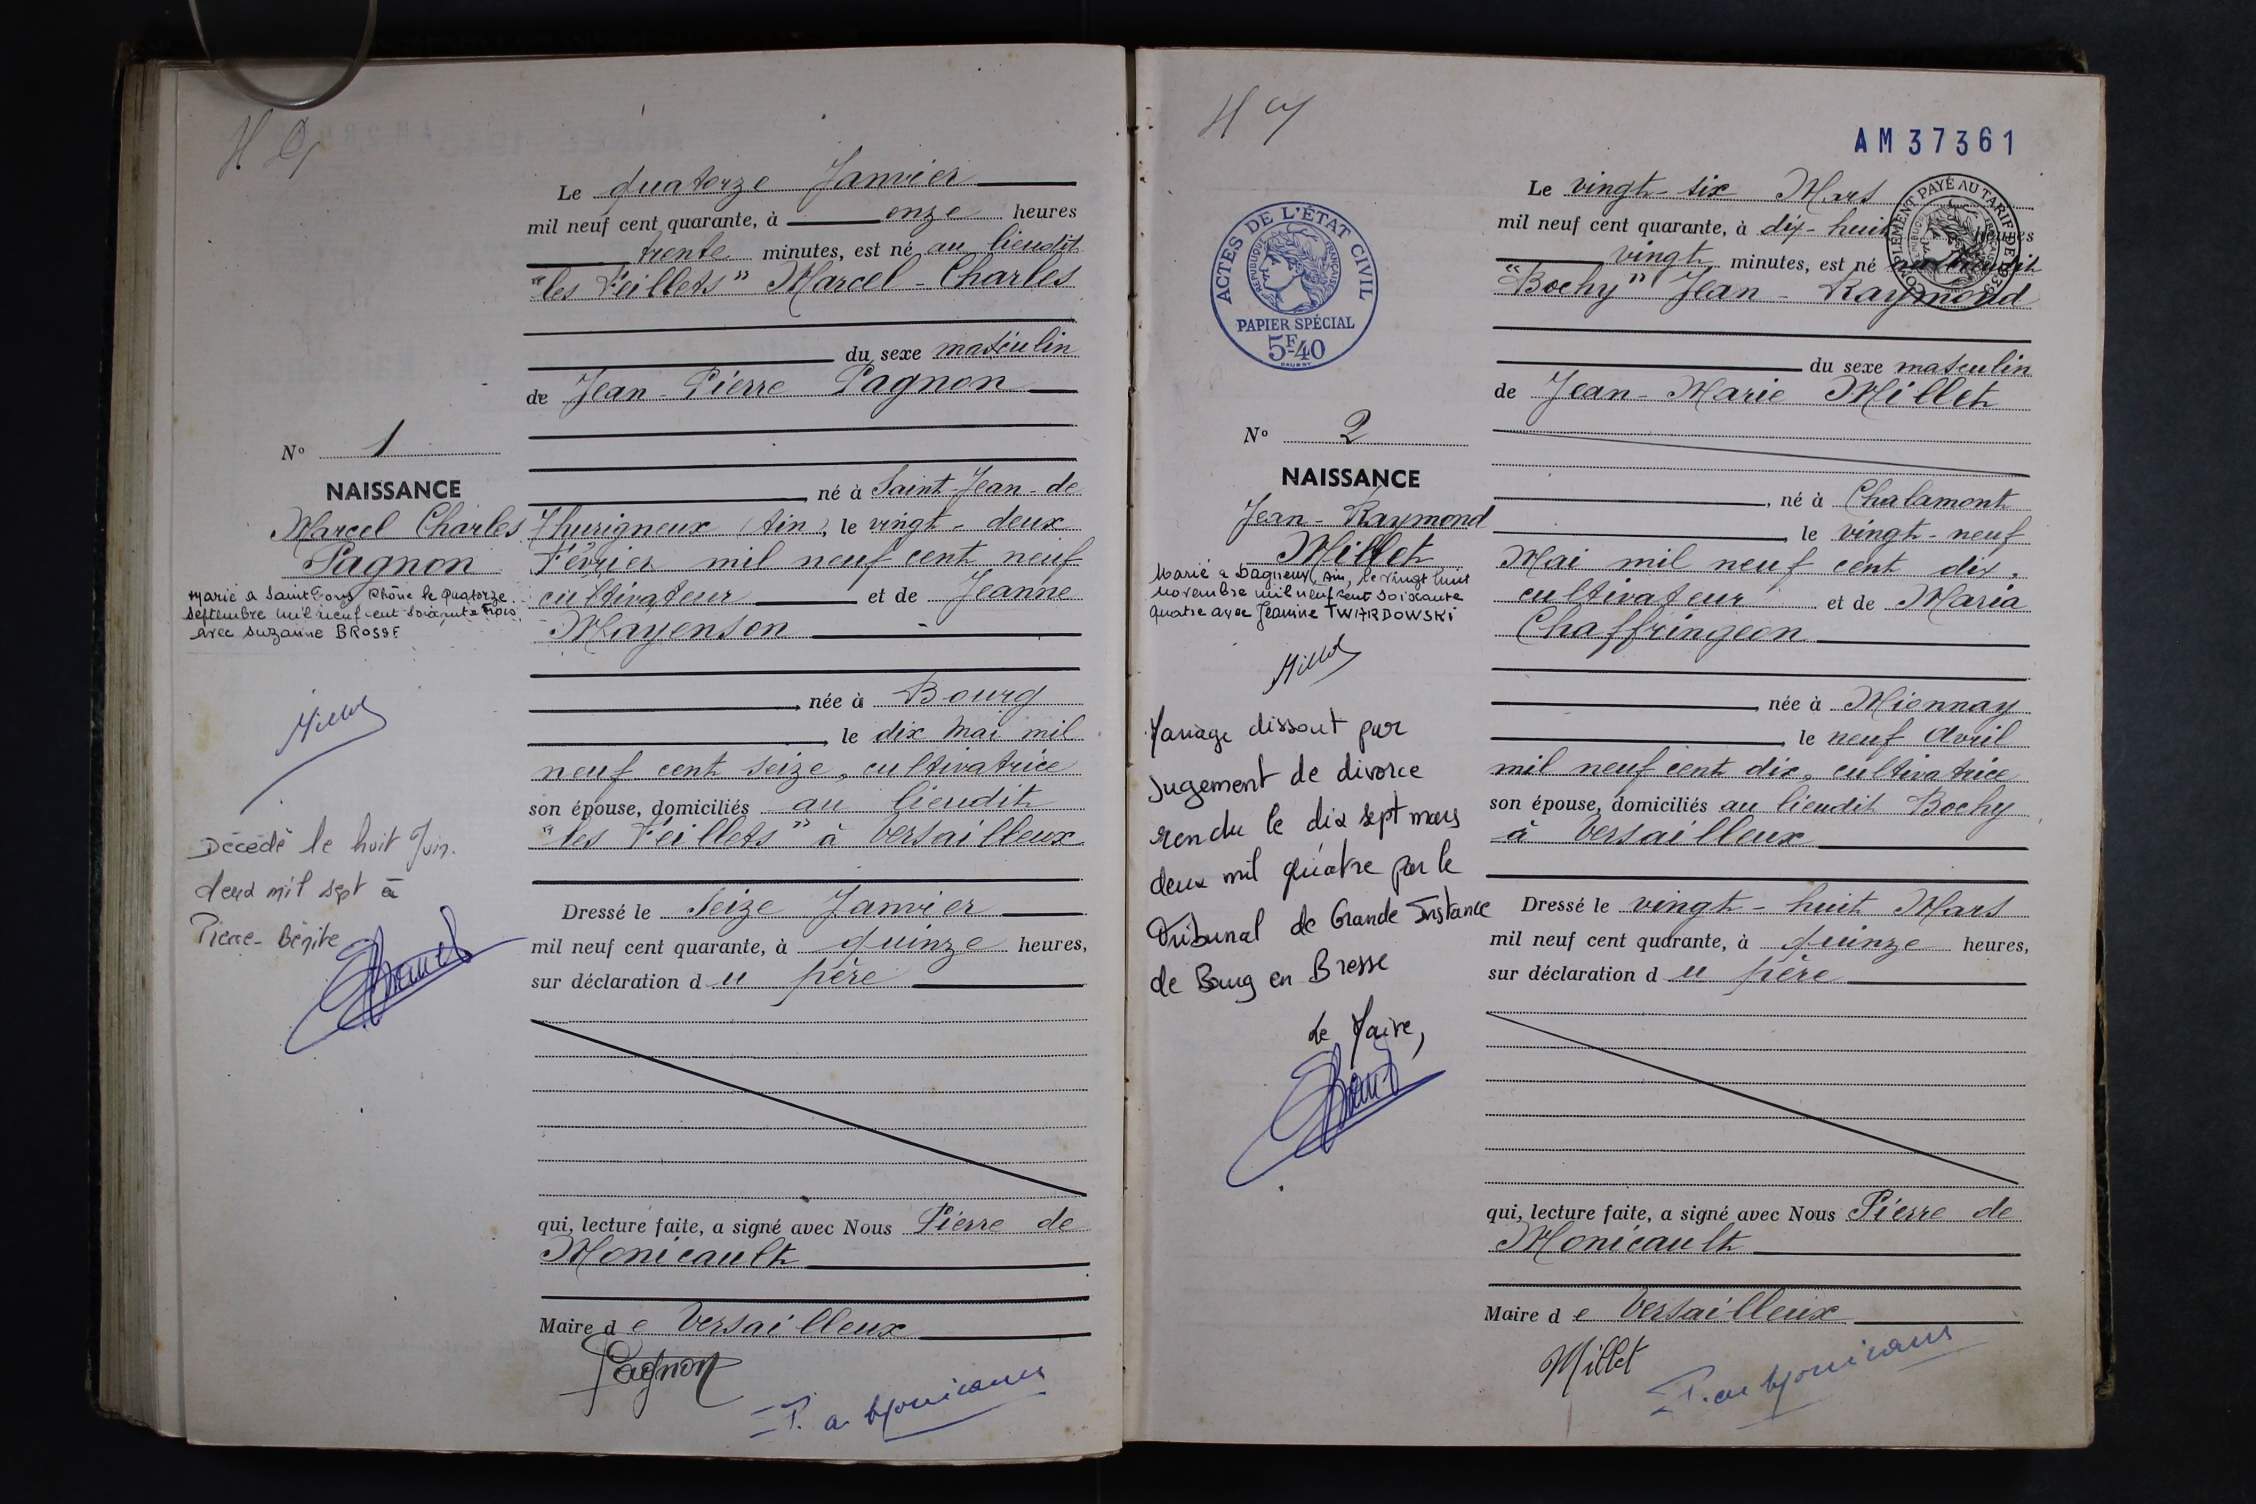 Le quatorze Janvier
mil neuf cent quarante, à onze heures
trente minutes, est né au lieudit
"les Feillets" Marcel-Charles
du sexe masculin
de Jean-Pierre Pagnon
né à Saint-Jean-de
Thurigneux (Ain), le vingt-deux
Février mil neuf cent neuf
cultivateur et de Jeanne
Mayenson
née à Bourg
le dix mai mil
neuf cent seize, cultivatrice
son épouse, domiciliés au lieudit
"les Feillets" à Versailleux
Dressé le Seize Janvier
mil neuf cent quarante, à quinze heures,
sur déclaration du père
qui, lecture faite, a signé avec Nous Pierre de
Monicault
Maire de Versailleux
Pagnon
N° 1
NAISSANCE
Marcel Charles
Pagnon
Marié a Saint Fons Rhône le quatorze
septembre mil neuf cent soixante trois
avec Suzanne BROSSE
Millet
Décédé le huit Juin
deux mil sept à
Pierre-Bénite
AM37361
Le vingt-six Mars
mil neuf cent quarante, à dix-huit heures
vingt minutes, est né au lieudit
"Bochy" Jean-Raymond
du sexe masculin
de Jean-Marie Millet
né à Chalamont
le vingt-neuf
Mai mil neuf cent dix,
cultivateur et de Maria
Chaffringeon
née à Mionnay
le neuf Avril
mil neuf cent dix, cultivatrice
son épouse, domiciliés au lieudit Bochy
à Versailleux
Dressé le vingt-huit Mars
mil neuf cent quarante, à quinze heures,
sur déclaration du père
qui, lecture faite, a signé avec Nous Pierre de
Monicault
Maire de Versailleux
Millet
ACTES DE L'ÉTAT CIVIL
RÉPUBLIQUE FRANÇAISE
PAPIER SPÉCIAL
5F40
COMPLÉMENT PAYÉ AU TARIF DE 1939
N° 2
NAISSANCE
Jean-Raymond
Millet
Marié a Dagneux, Ain, le vingt huit
novembre mil neuf cent soixante
quatre avec Jeannine TWARDOWSKI
Millet
Mariage dissout par
Jugement de divorce
rendu le dix sept mars
deux mil quatre par le
Tribunal de Grande Instance
de Bourg en Bresse
Le Maire,